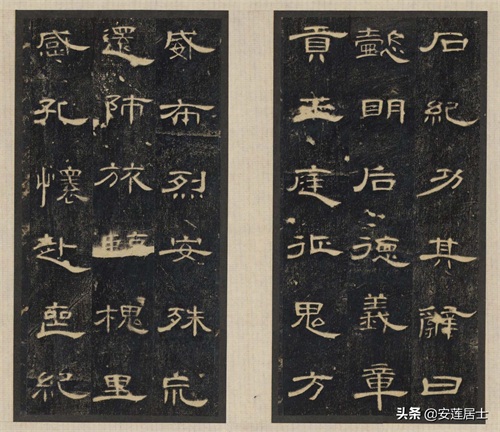 石紀功其辭曰
懿明后德義章
貢王庭征鬼方
威布烈安殊巟
還師旅臨槐里
感孔懷赴喪紀
头条 @安莲居士